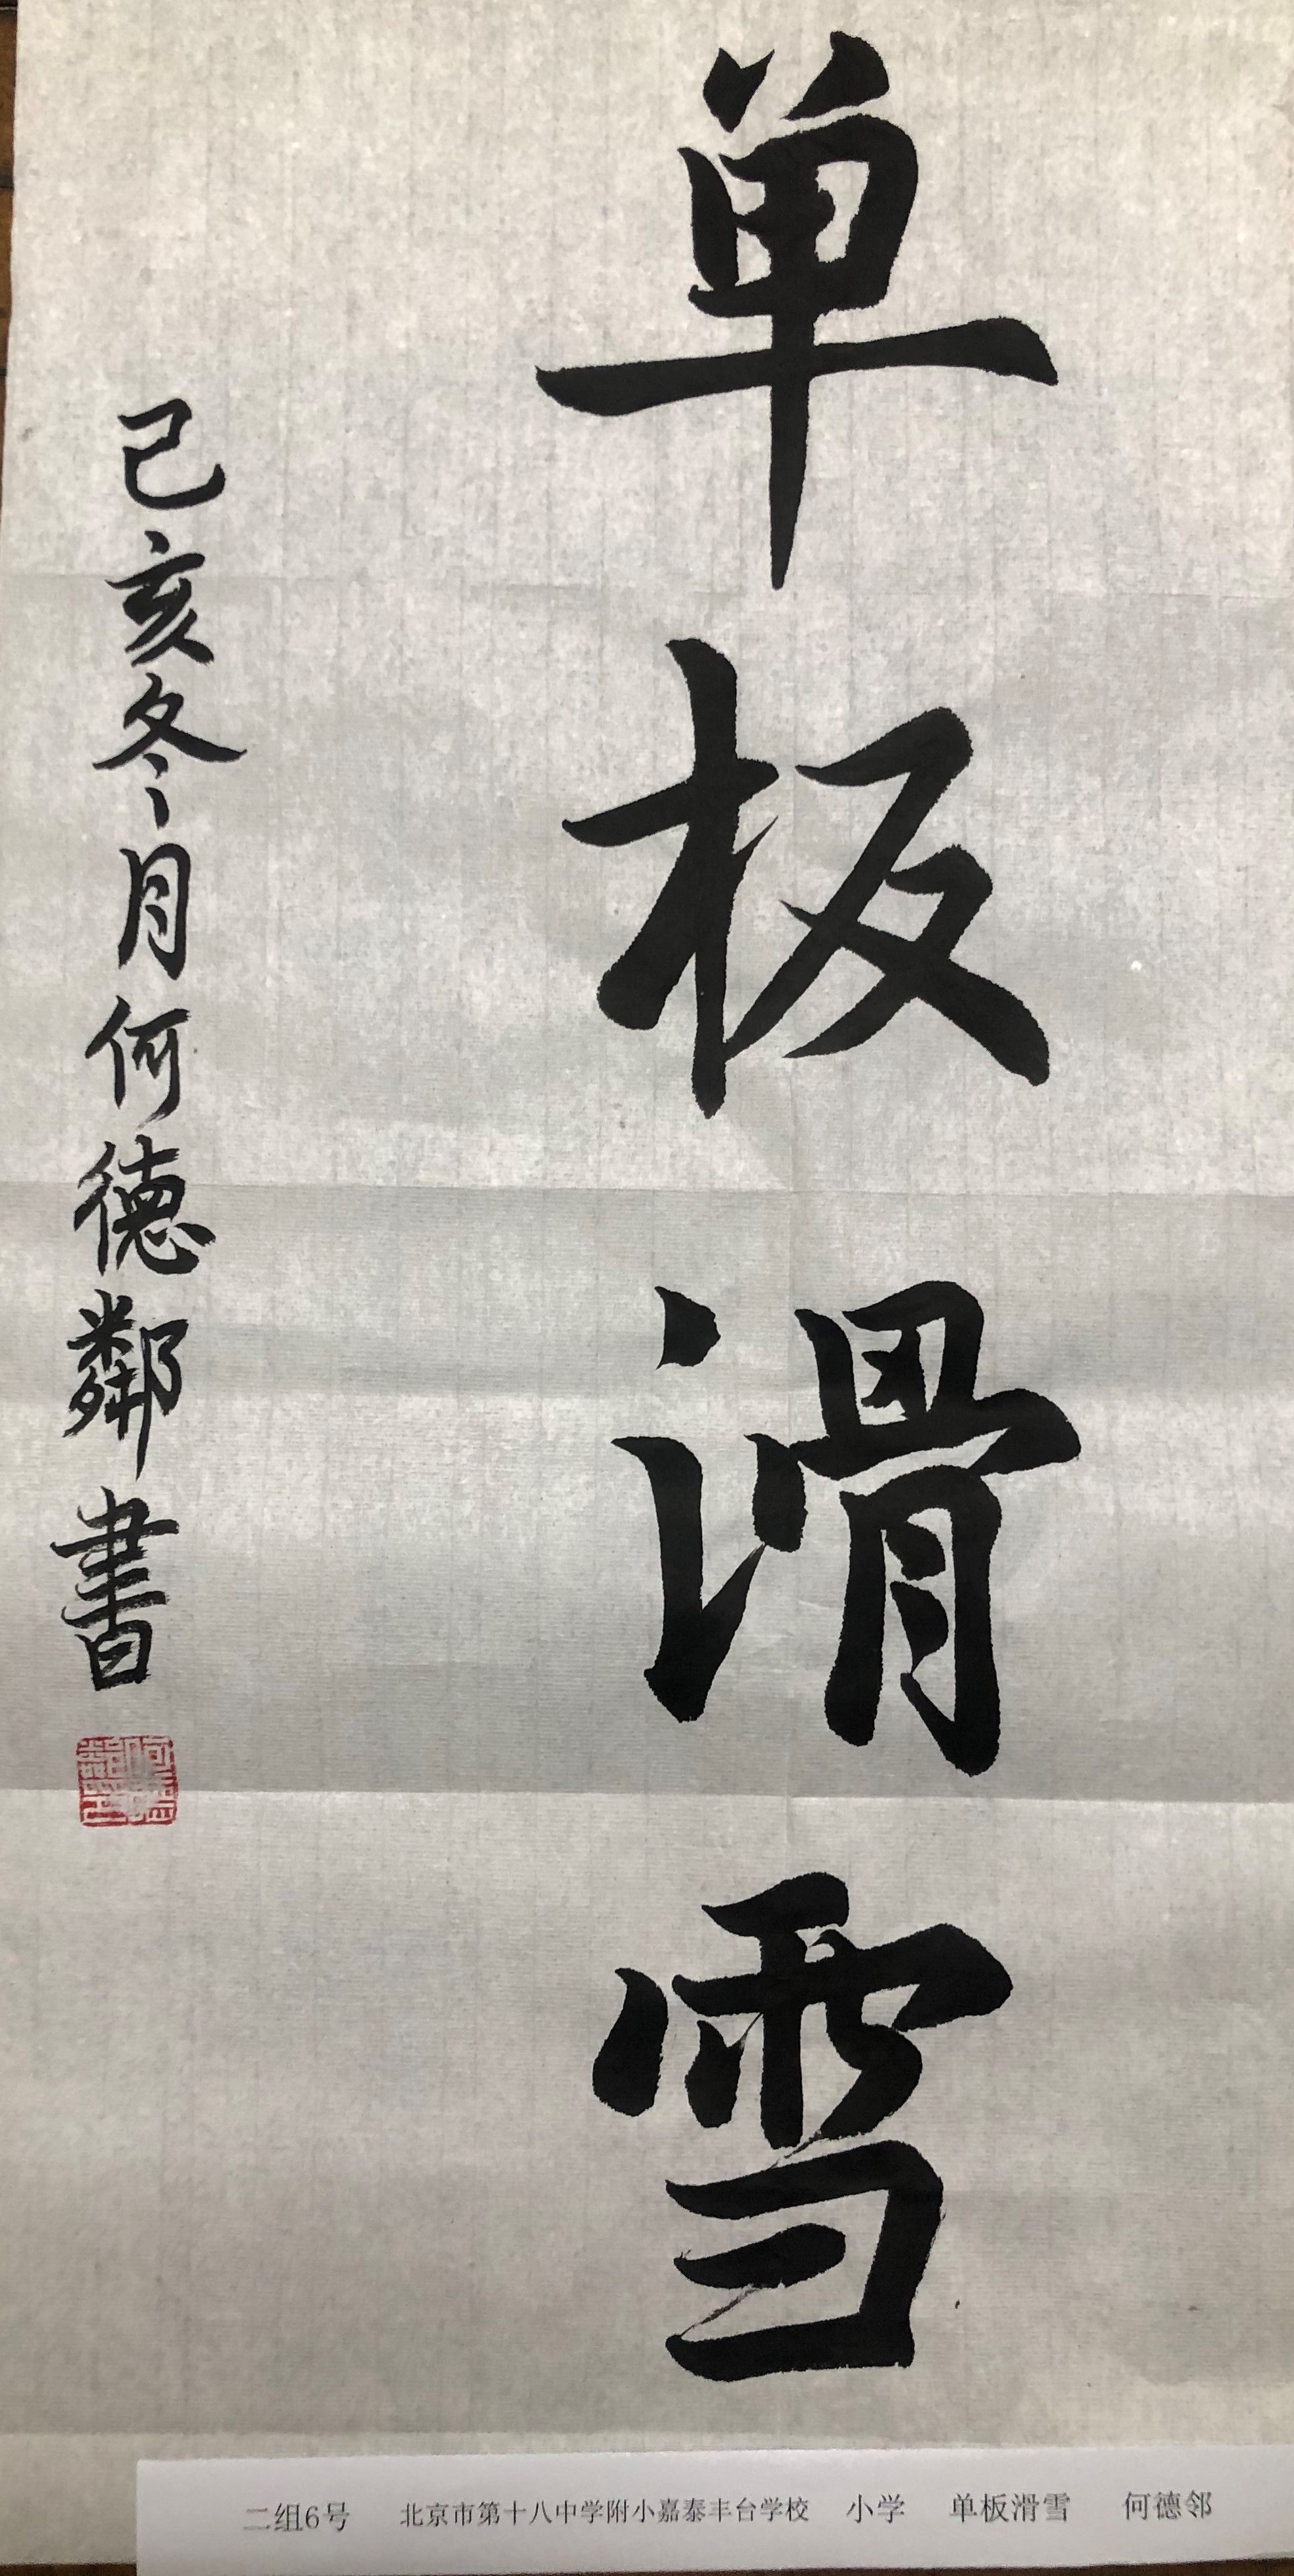 单板滑雪
己亥冬月何德鄰書
二组6号 北京市第十八中学附小嘉泰丰台学校 小学 单板滑雪 何德邻